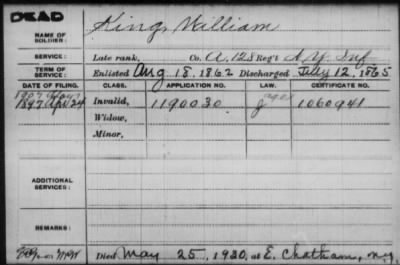 DEAD
NAME OF SOLDIER: King, William
SERVICE: Late rank, Co. A, 128 Reg't N.Y. Inf
TERM OF SERVICE: Enlisted Aug 18, 1862 Discharged July 12, 1865
DATE OF FILING. CLASS. APPLICATION NO. LAW. CERTIFICATE NO.
1897 Apr 24 Invalid, 1190030 1060941
Widow,
Minor,
ADDITIONAL SERVICES:
REMARKS:
Died May 25, 1920, at E. Chatham, N.Y.